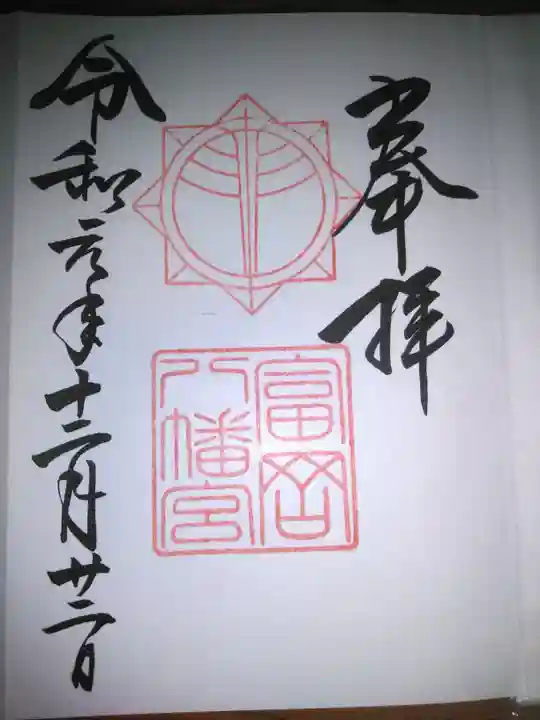 奉拝
富岡
八幡宮
令和元年十二月廿二日